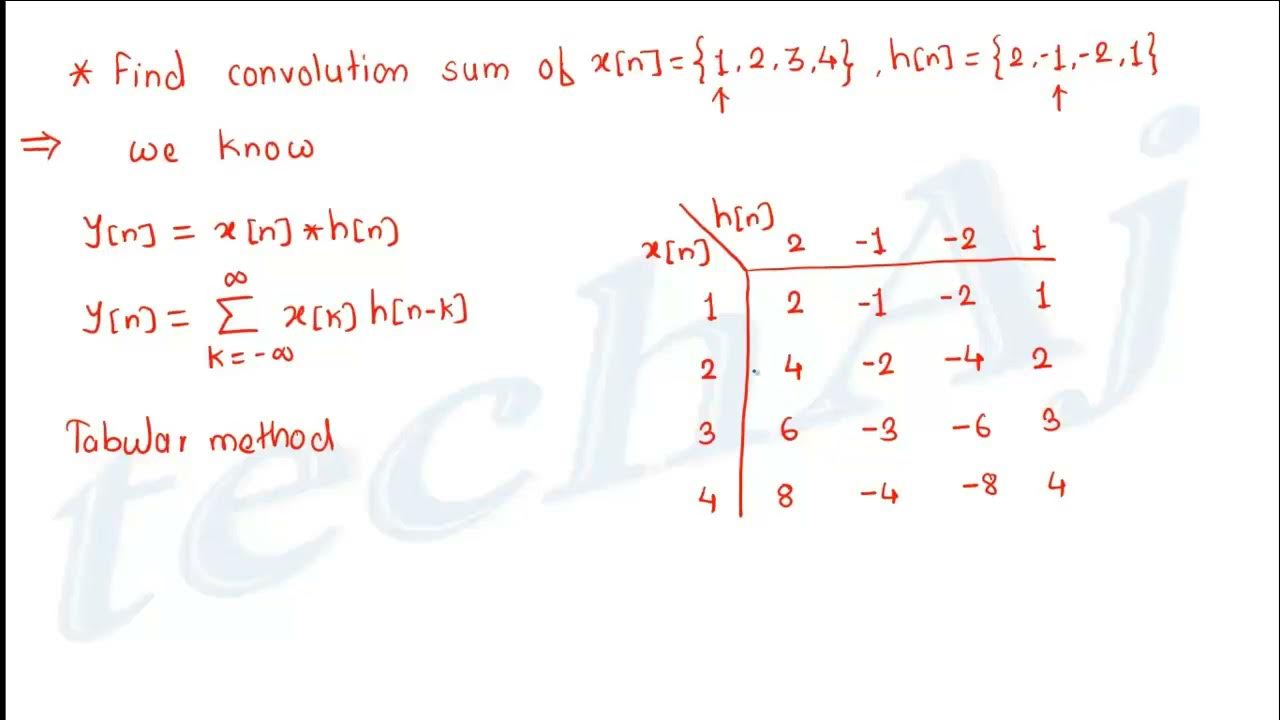 * Find convolution sum of x[n]={1,2,3,4}, h[n]={2,-1,-2,1}
↑ ↑
⇒ we know
y[n] = x[n]*h[n]
y[n] = ∞ Σ k=-∞ x[k] h[n-k]
Tabular method
h[n]
x[n] 2 -1 -2 1
1 2 -1 -2 1
2 4 -2 -4 2
3 6 -3 -6 3
4 8 -4 -8 4
techAj